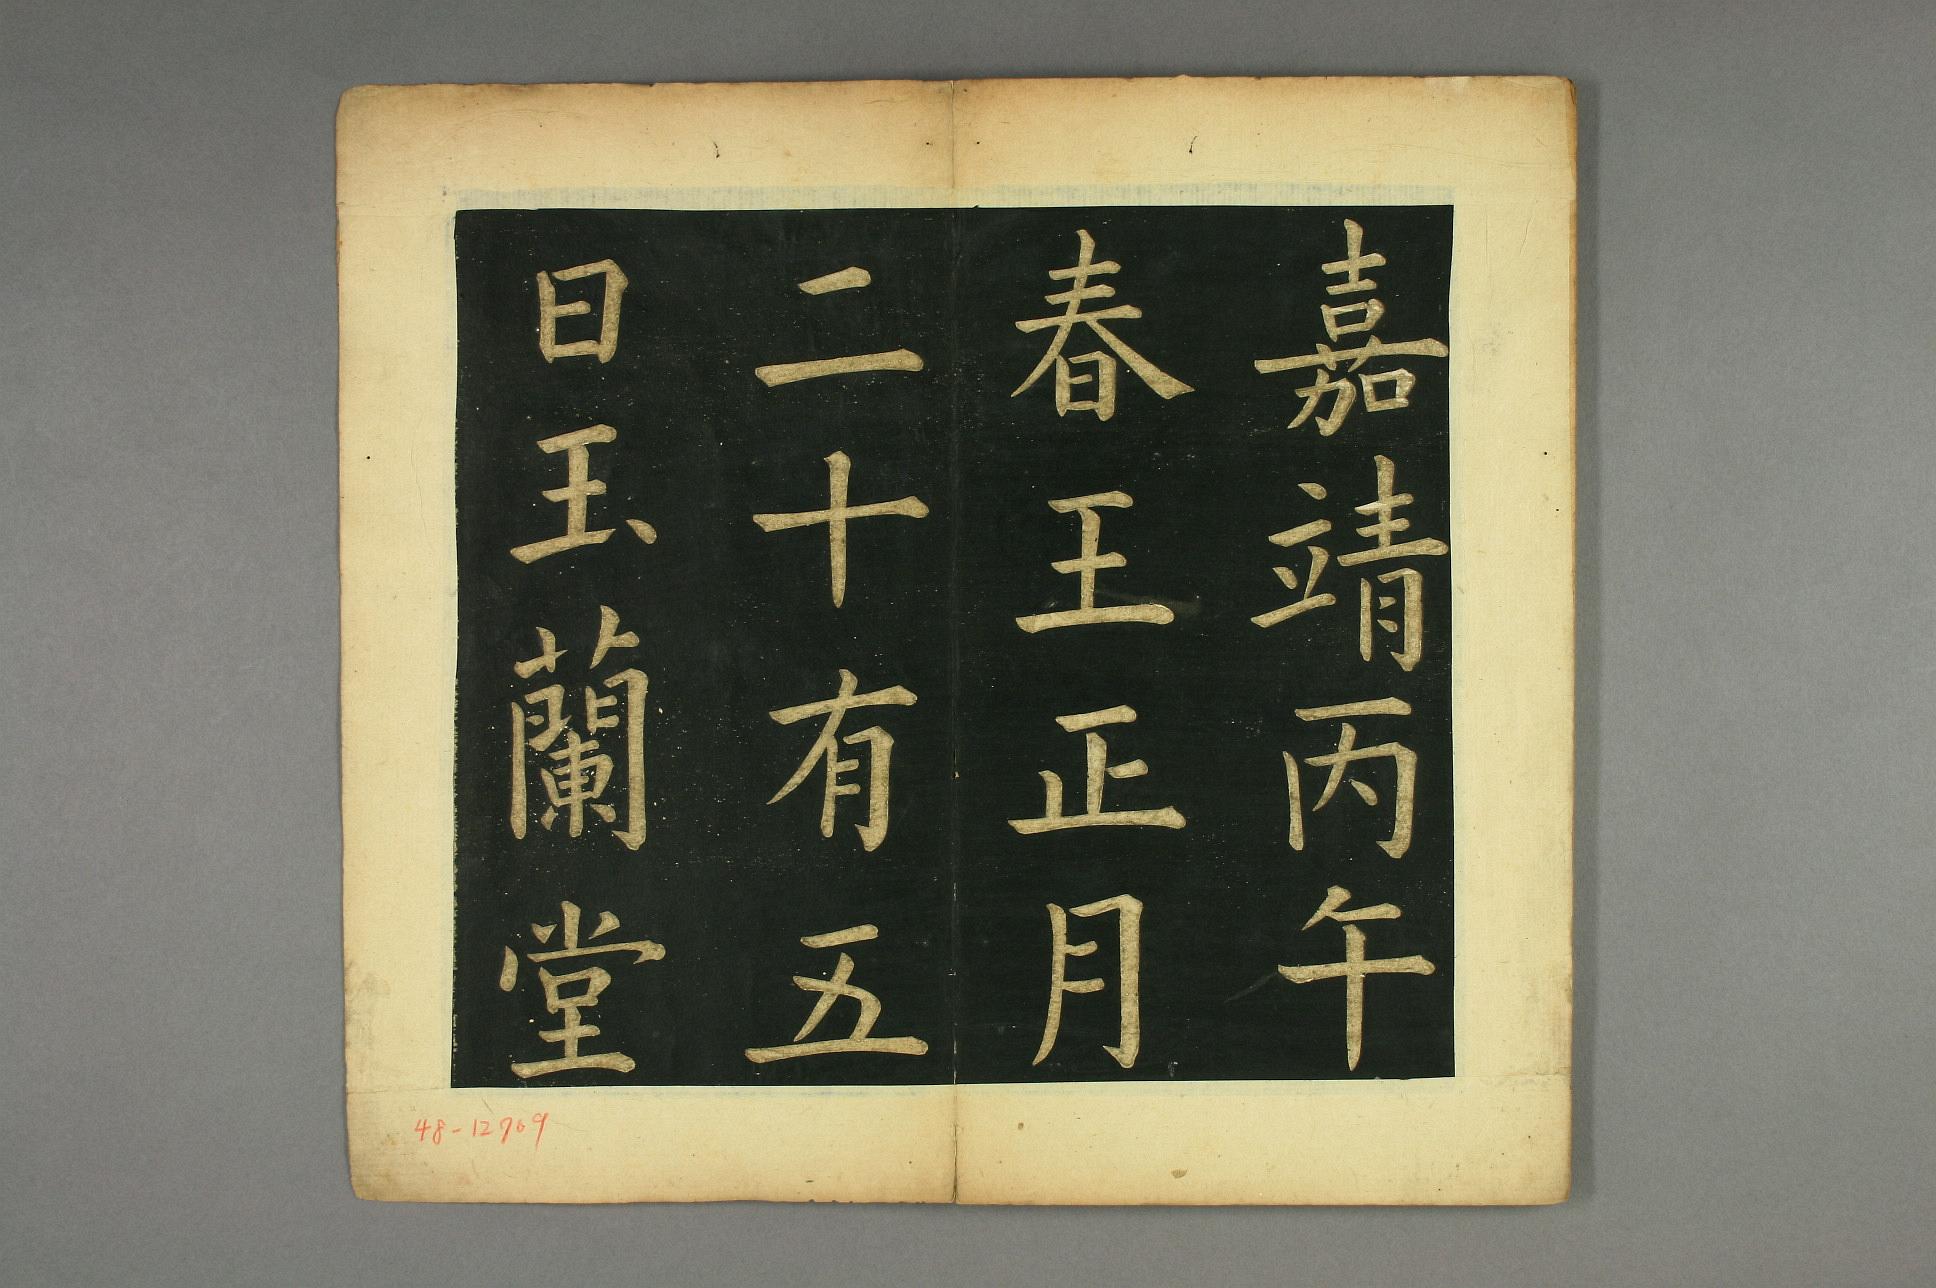 嘉靖丙午
春王正月
二十有五
日玉蘭堂
48-12709